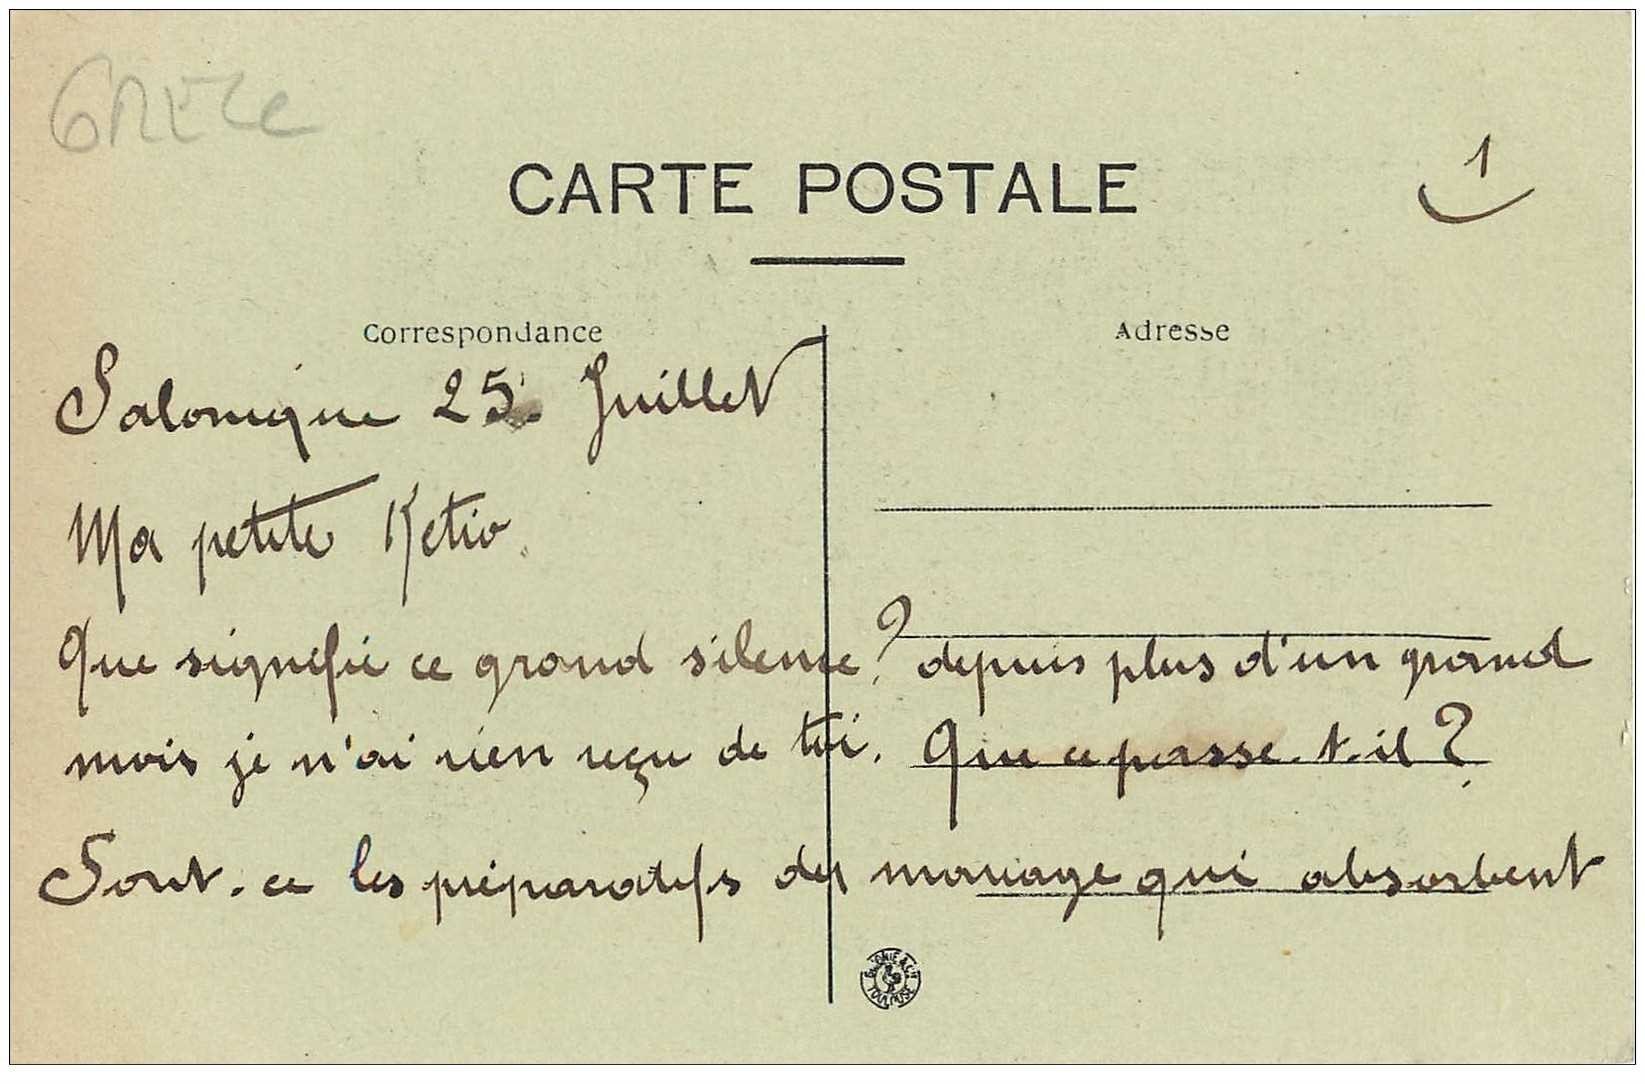 GRÈCE
1
CARTE POSTALE
Correspondance
Adresse
Salonique 25 Juillet
Ma petite Ketio
Que signifie ce grand silence? depuis plus d'un grand
mois je n'ai rien reçu de toi. Que ce passe-t-il?
Sont-ce les préparatifs des mariage qui absorbent
TOULOUSE